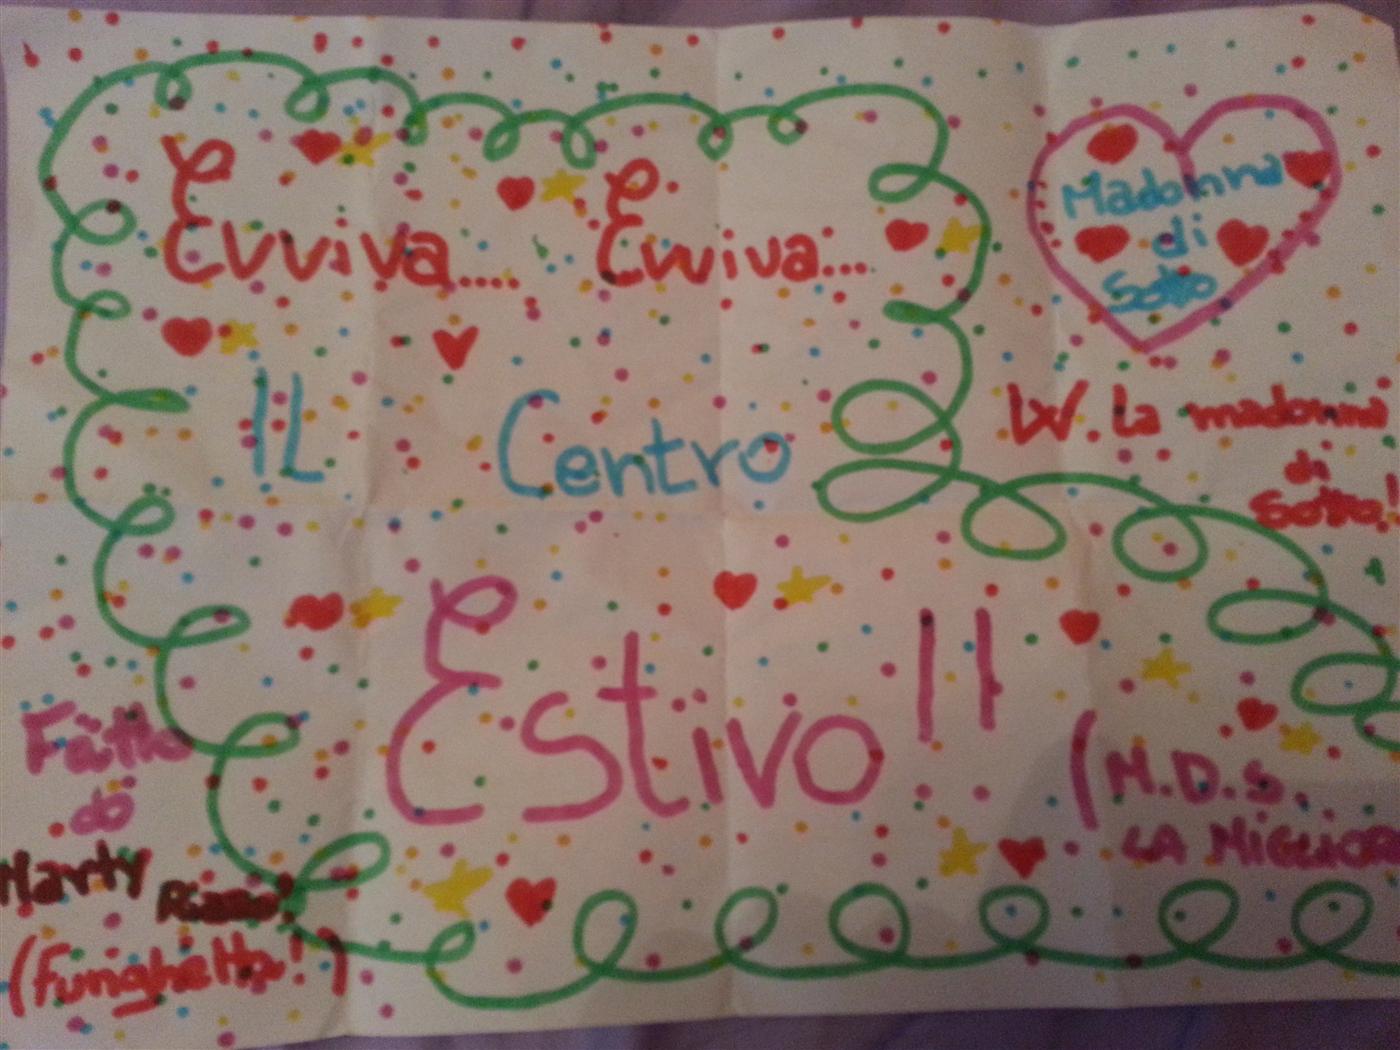 E E
Evviva.... Evviva...
IL Centro
Estivo!!
Madonna
di
Sotto
W. La madonna
di
Sotto!
(M.D.S.
LA MIGLIOR
Fatto
da
Marty
(Funghetta!)